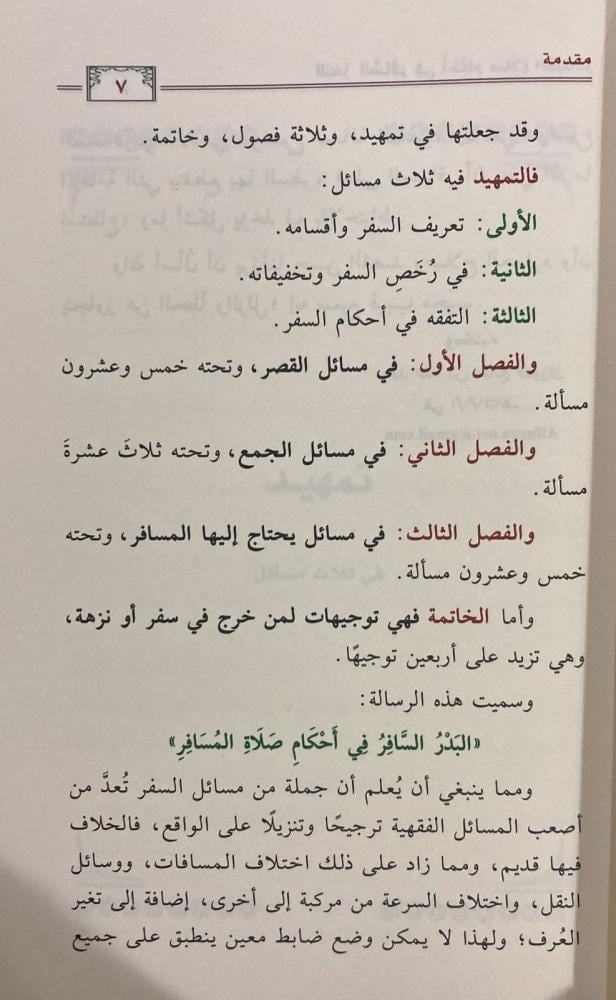 مقدمة
٧
وقد جعلتها في تمهيد، وثلاثة فصول، وخاتمة.
فالتمهيد فيه ثلاث مسائل:
الأولى: تعريف السفر وأقسامه.
الثانية: في رُخَصِ السفر وتخفيفاته.
الثالثة: التفقه في أحكام السفر.
والفصل الأول: في مسائل القصر، وتحته خمس وعشرون
مسألة.
والفصل الثاني: في مسائل الجمع، وتحته ثلاثَ عشرةَ
مسألة.
والفصل الثالث: في مسائل يحتاج إليها المسافر، وتحته
خمس وعشرون مسألة.
وأما الخاتمة فهي توجيهات لمن خرج في سفر أو نزهة،
وهي تزيد على أربعين توجيهًا.
وسميت هذه الرسالة:
«البَدْرُ السَّافِرُ فِي أَحْكَامِ صَلَاةِ المُسَافِرِ»
ومما ينبغي أن يُعلم أن جملة من مسائل السفر تُعدَّ من
أصعب المسائل الفقهية ترجيحًا وتنزيلًا على الواقع، فالخلاف
فيها قديم، ومما زاد على ذلك اختلاف المسافات، ووسائل
النقل، واختلاف السرعة من مركبة إلى أخرى، إضافة إلى تغير
العُرف؛ ولهذا لا يمكن وضع ضابط معين ينطبق على جميع